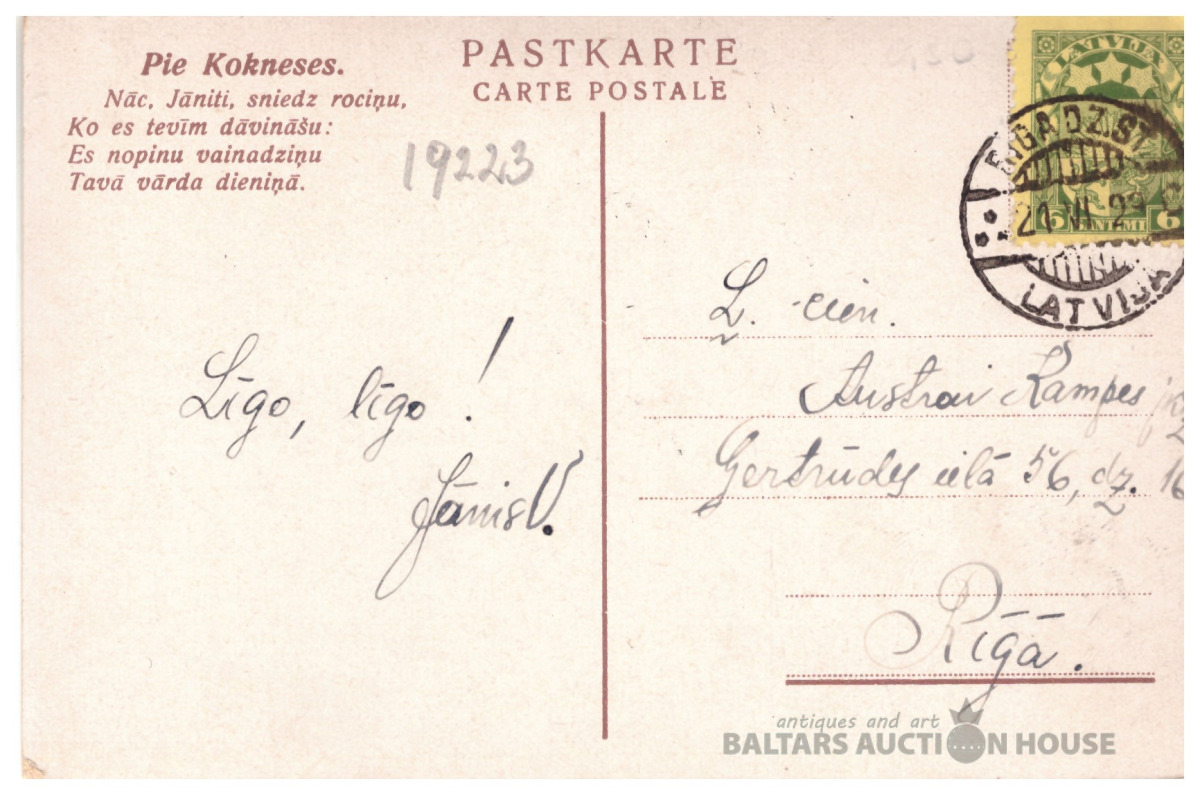 Pie Kokneses.
Nāc, Jāniti, sniedz rociņu,
Ko es tevīm dāvināšu:
Es nopinu vainadziņu
Tavā vārda dieniņā.
PASTKARTE
CARTE POSTALE
19223
LATVIJA
6 SANTIMI 6
RIGA DZ.ST
21 VI 29
LATVIJA
Līgo, līgo!
Jānis V.
L. cien.
Austrai Kampes
Gertrūdes ielā 56, dz. 16
Rīgā.
antiques and art
BALTARS AUCTION HOUSE